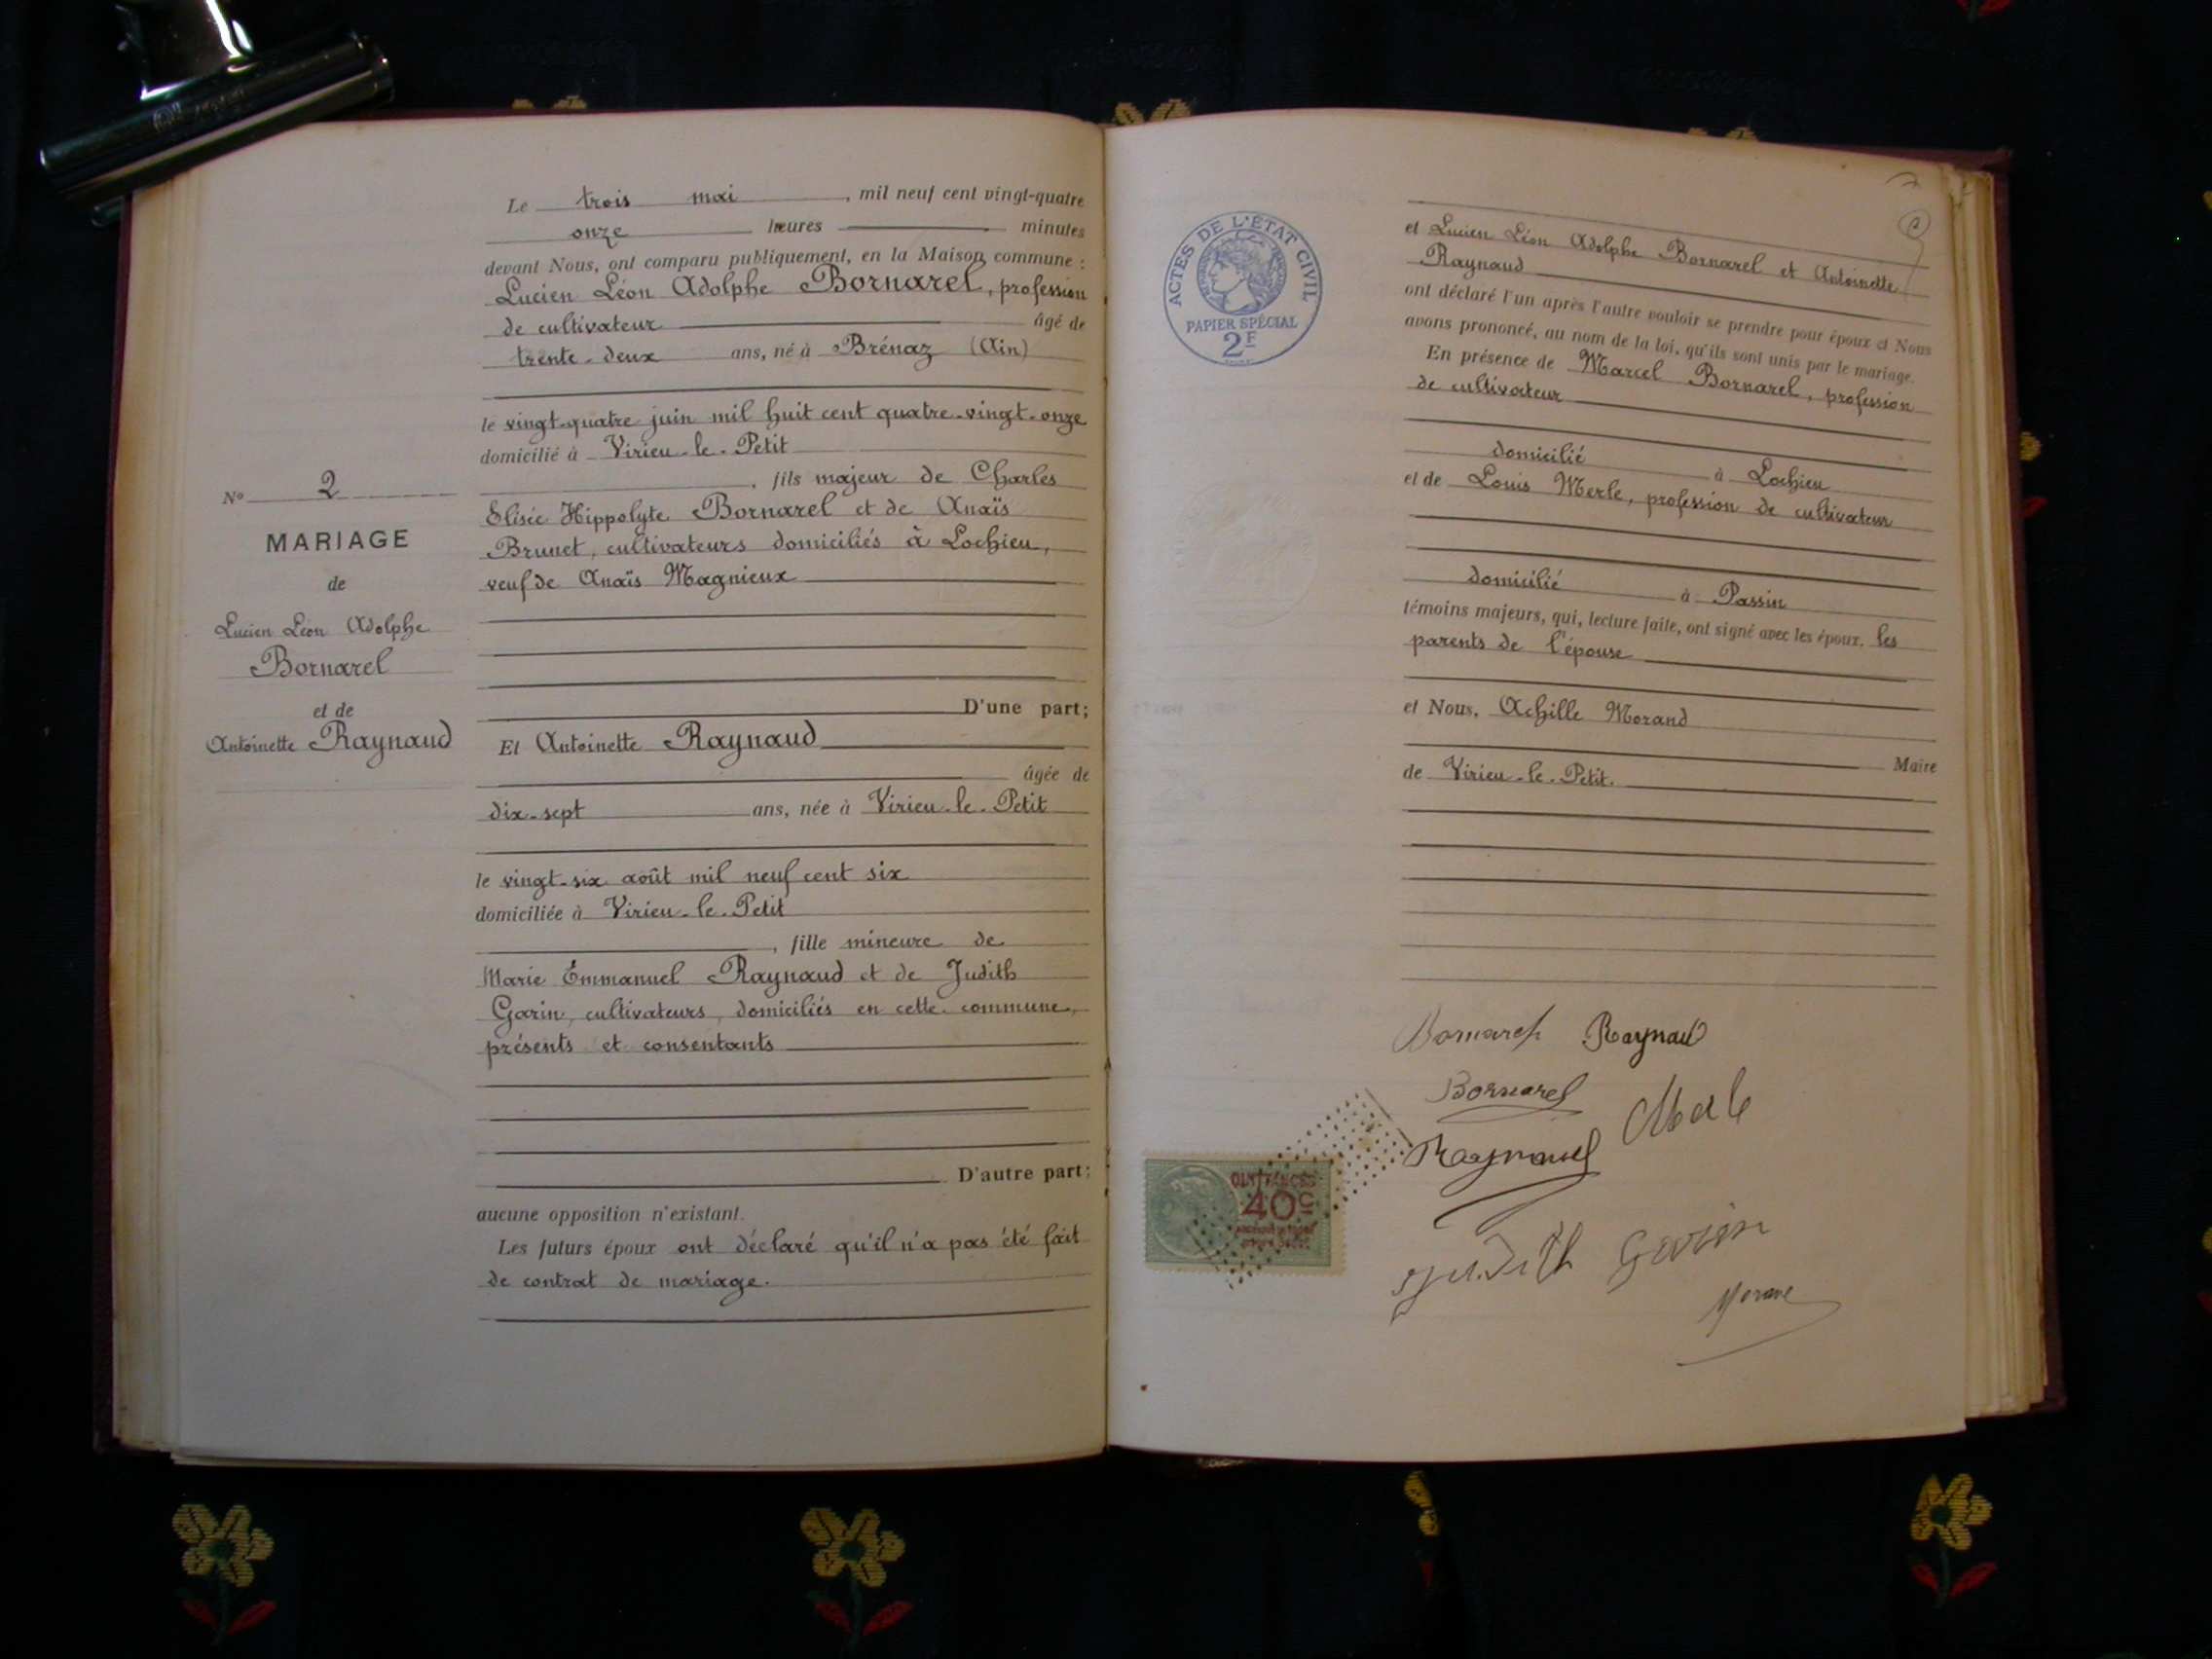 N° 2
MARIAGE
de
Lucien Léon Adolphe
Bornarel
et de
Antoinette Raynaud
Le trois mai, mil neuf cent vingt-quatre
onze heures minutes
devant Nous, ont comparu publiquement, en la Maison commune :
Lucien Léon Adolphe Bornarel, profession
de cultivateur âgé de
trente-deux ans, né à Brénaz (Ain)
le vingt-quatre juin mil huit cent quatre-vingt-onze
domicilié à Virieu-le-Petit
, fils majeur de Charles
Elisée Hippolyte Bornarel et de Anaïs
Brunet, cultivateurs domiciliés à Lochieu,
veuf de Anaïs Magnieux
D'une part;
Et Antoinette Raynaud
âgée de
dix-sept ans, née à Virieu-le-Petit
le vingt-six août mil neuf cent six
domiciliée à Virieu-le-Petit
, fille mineure de
Marie Emmanuel Raynaud et de Judith
Garin, cultivateurs, domiciliés en cette commune,
présents et consentants
D'autre part;
aucune opposition n'existant.
Les futurs époux ont déclaré qu'il n'a pas été fait
de contrat de mariage.
ACTES DE L'ÉTAT CIVIL
PAPIER SPÉCIAL
2F
et Lucien Léon Adolphe Bornarel et Antoinette
Raynaud
ont déclaré l'un après l'autre vouloir se prendre pour époux et Nous
avons prononcé, au nom de la loi, qu'ils sont unis par le mariage.
En présence de Marcel Bornarel, profession
de cultivateur
domicilié à Lochieu
et de Louis Merle, profession de cultivateur
domicilié à Passin
témoins majeurs, qui, lecture faite, ont signé avec les époux, les
parents de l'épouse
et Nous, Achille Morand
Maire
de Virieu-le-Petit.
Bornarel Raynaud
Bornarel
Merle
Raynaud
QUITTANCES
40c
Judith Garin
Morand